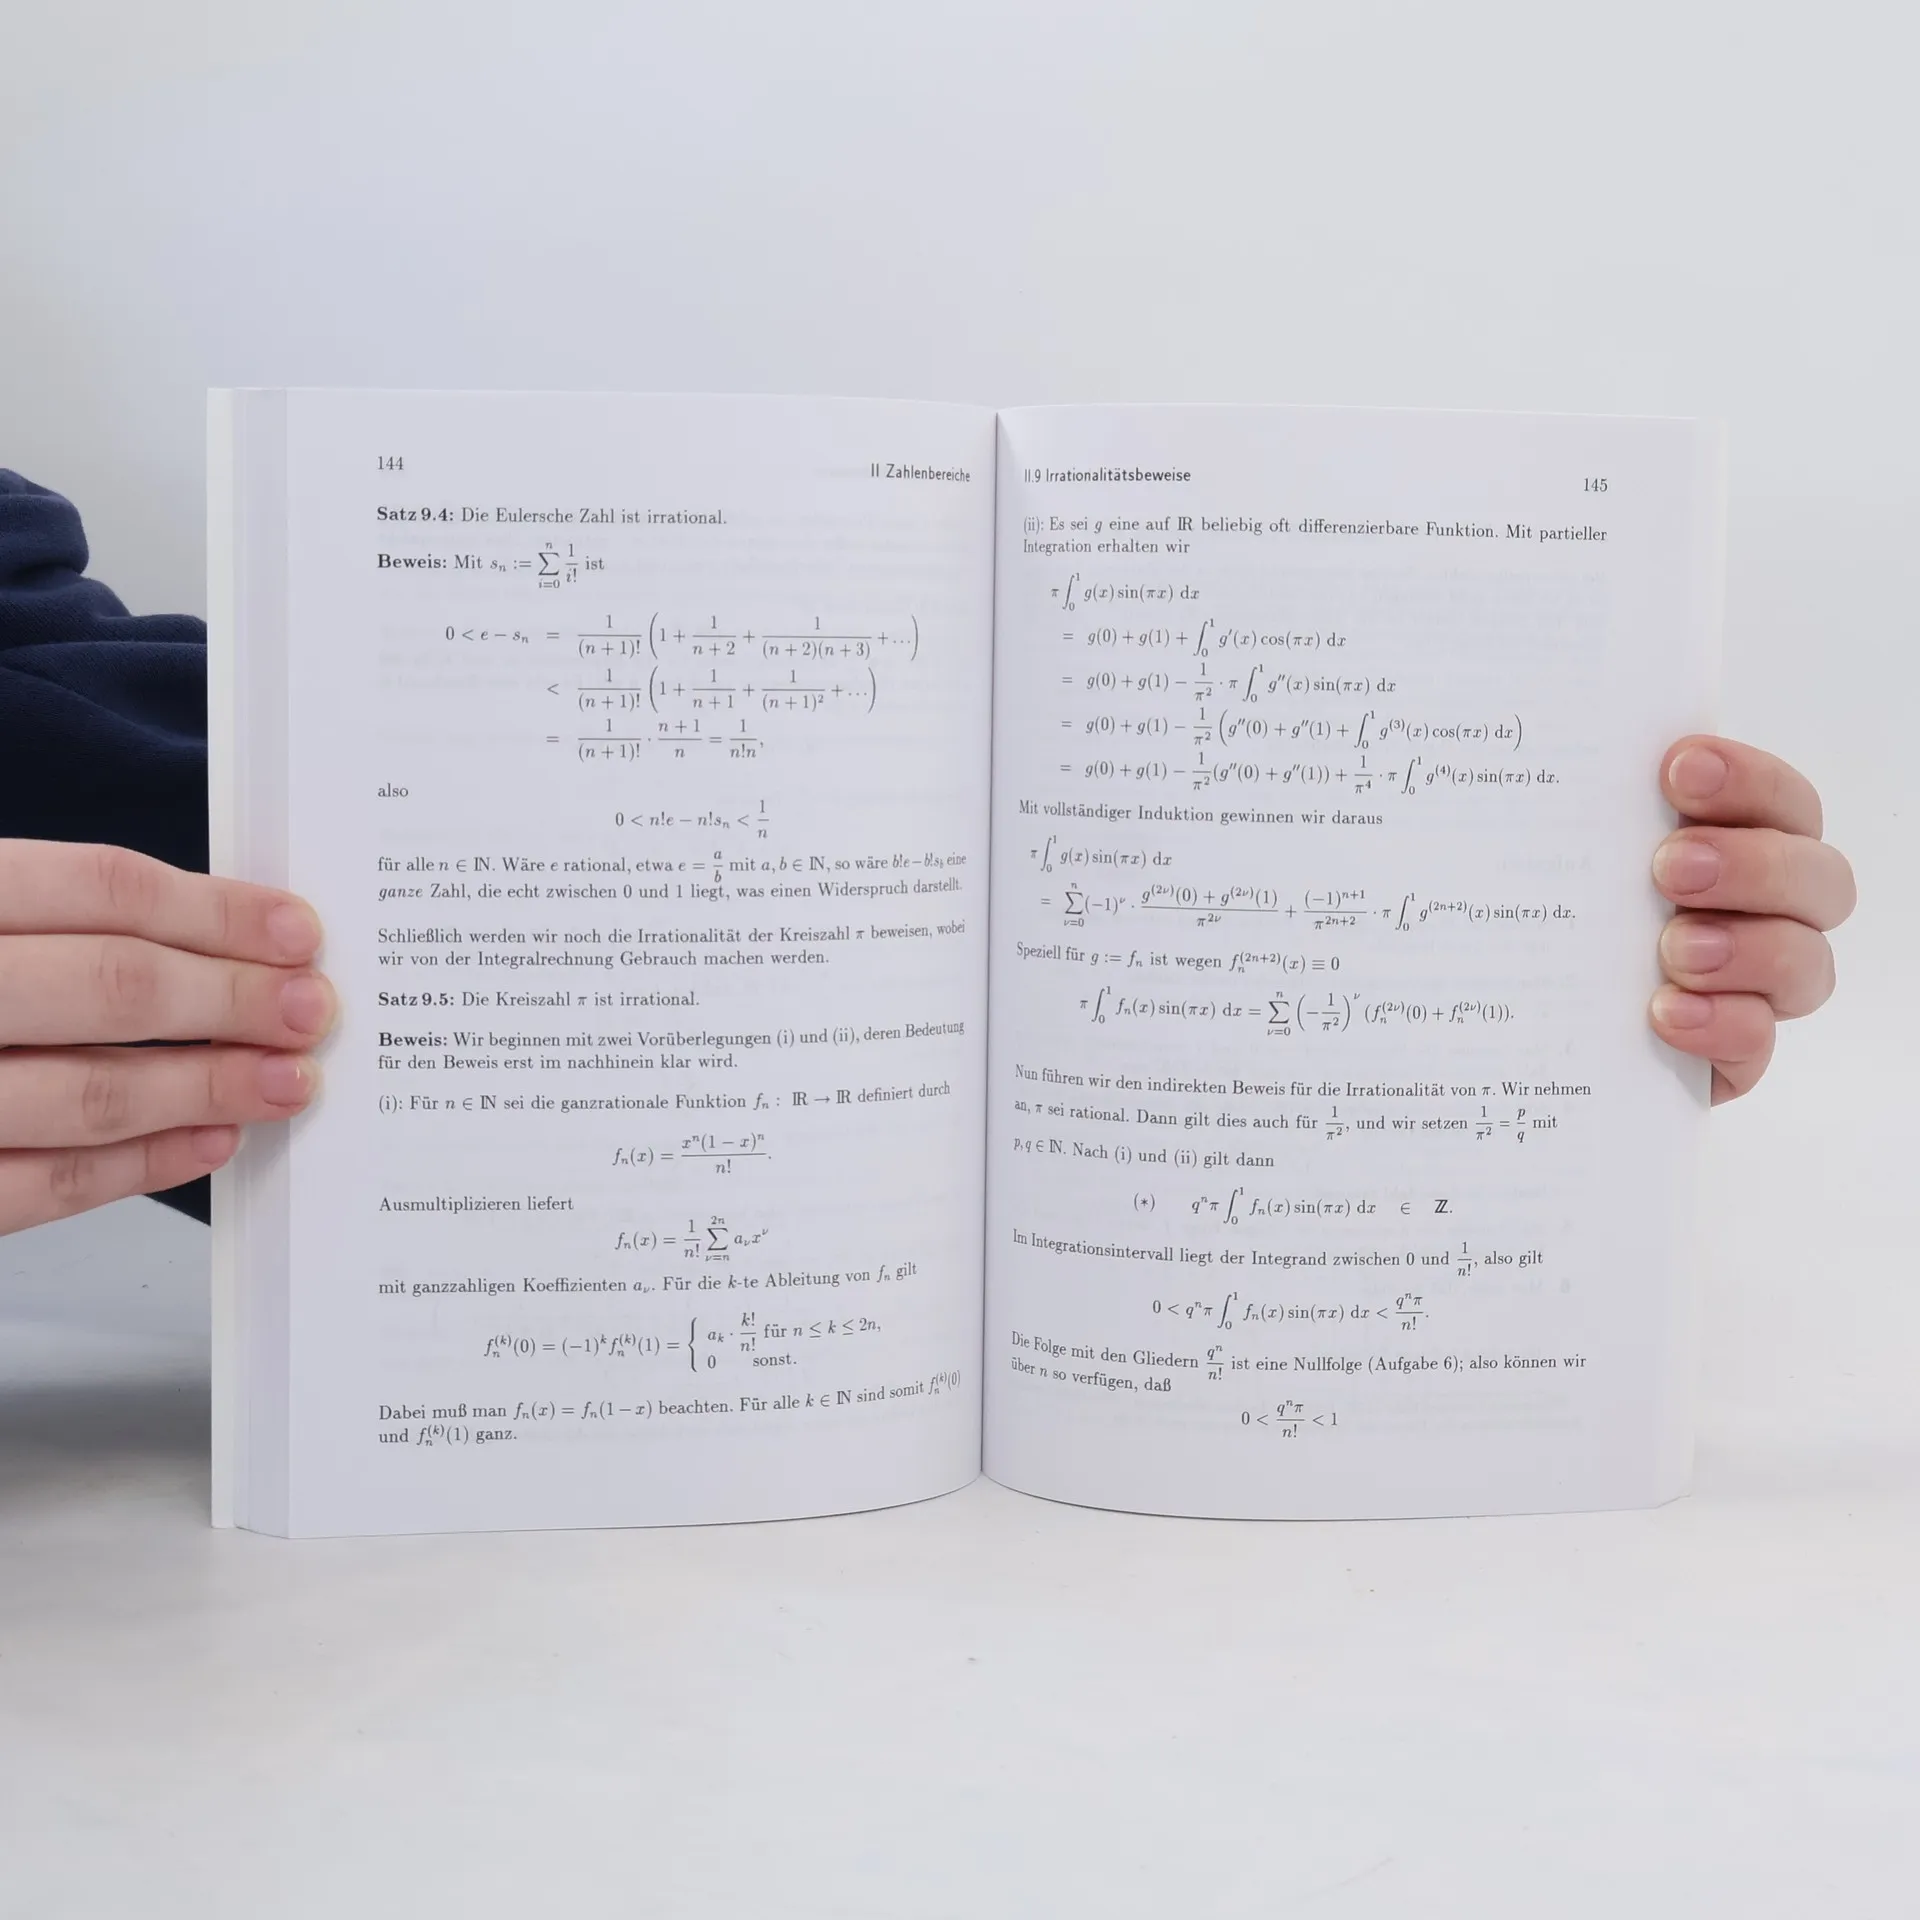 144
II Zahlenbereiche
Satz 9.4: Die Eulersche Zahl ist irrational.
Beweis: Mit $s_n := \sum_{i=0}^{n} \frac{1}{i!}$ ist
$0 < e - s_n = \frac{1}{(n+1)!} \left(1 + \frac{1}{n+2} + \frac{1}{(n+2)(n+3)} + \ldots\right)$
$< \frac{1}{(n+1)!} \left(1 + \frac{1}{n+1} + \frac{1}{(n+1)^2} + \ldots\right)$
$= \frac{1}{(n+1)!} \cdot \frac{n+1}{n} = \frac{1}{n!n},$
also
$0 < n!e - n!s_n < \frac{1}{n}$
für alle $n \in \mathbb{N}$. Wäre $e$ rational, etwa $e = \frac{a}{b}$ mit $a, b \in \mathbb{N}$, so wäre $b!e - b!s_b$ eine
ganze Zahl, die echt zwischen 0 und 1 liegt, was einen Widerspruch darstellt.
Schließlich werden wir noch die Irrationalität der Kreiszahl $\pi$ beweisen, wobei
wir von der Integralrechnung Gebrauch machen werden.
Satz 9.5: Die Kreiszahl $\pi$ ist irrational.
Beweis: Wir beginnen mit zwei Vorüberlegungen (i) und (ii), deren Bedeutung
für den Beweis erst im nachhinein klar wird.
(i): Für $n \in \mathbb{N}$ sei die ganzrationale Funktion $f_n : \mathbb{R} \to \mathbb{R}$ definiert durch
$f_n(x) = \frac{x^n(1-x)^n}{n!}.$
Ausmultiplizieren liefert
$f_n(x) = \frac{1}{n!} \sum_{\nu=n}^{2n} a_\nu x^\nu$
mit ganzzahligen Koeffizienten $a_\nu$. Für die $k$-te Ableitung von $f_n$ gilt
$f_n^{(k)}(0) = (-1)^k f_n^{(k)}(1) = \begin{cases} a_k \cdot \frac{k!}{n!} & \text{für } n \leq k \leq 2n, \\ 0 & \text{sonst.} \end{cases}$
Dabei muß man $f_n(x) = f_n(1-x)$ beachten. Für alle $k \in \mathbb{N}$ sind somit $f_n^{(k)}(0)$
und $f_n^{(k)}(1)$ ganz.
II.9 Irrationalitätsbeweise
145
(ii): Es sei $g$ eine auf $\mathbb{R}$ beliebig oft differenzierbare Funktion. Mit partieller
Integration erhalten wir
$\pi \int_0^1 g(x) \sin(\pi x) \, dx$
$= g(0) + g(1) + \int_0^1 g'(x) \cos(\pi x) \, dx$
$= g(0) + g(1) - \frac{1}{\pi^2} \cdot \pi \int_0^1 g''(x) \sin(\pi x) \, dx$
$= g(0) + g(1) - \frac{1}{\pi^2} \left(g''(0) + g''(1) + \int_0^1 g^{(3)}(x) \cos(\pi x) \, dx\right)$
$= g(0) + g(1) - \frac{1}{\pi^2} (g''(0) + g''(1)) + \frac{1}{\pi^4} \cdot \pi \int_0^1 g^{(4)}(x) \sin(\pi x) \, dx.$
Mit vollständiger Induktion gewinnen wir daraus
$\pi \int_0^1 g(x) \sin(\pi x) \, dx$
$= \sum_{\nu=0}^{n} (-1)^\nu \cdot \frac{g^{(2\nu)}(0) + g^{(2\nu)}(1)}{\pi^{2\nu}} + \frac{(-1)^{n+1}}{\pi^{2n+2}} \cdot \pi \int_0^1 g^{(2n+2)}(x) \sin(\pi x) \, dx.$
Speziell für $g := f_n$ ist wegen $f_n^{(2n+2)}(x) \equiv 0$
$\pi \int_0^1 f_n(x) \sin(\pi x) \, dx = \sum_{\nu=0}^{n} \left(-\frac{1}{\pi^2}\right)^\nu (f_n^{(2\nu)}(0) + f_n^{(2\nu)}(1)).$
Nun führen wir den indirekten Beweis für die Irrationalität von $\pi$. Wir nehmen
an, $\pi$ sei rational. Dann gilt dies auch für $\frac{1}{\pi^2}$, und wir setzen $\frac{1}{\pi^2} = \frac{p}{q}$ mit
$p, q \in \mathbb{N}$. Nach (i) und (ii) gilt dann
$(*) \quad q^n \pi \int_0^1 f_n(x) \sin(\pi x) \, dx \in \mathbb{Z}.$
Im Integrationsintervall liegt der Integrand zwischen 0 und $\frac{1}{n!}$, also gilt
$0 < q^n \pi \int_0^1 f_n(x) \sin(\pi x) \, dx < \frac{q^n \pi}{n!}.$
Die Folge mit den Gliedern $\frac{q^n}{n!}$ ist eine Nullfolge (Aufgabe 6); also können wir
über $n$ so verfügen, daß
$0 < \frac{q^n \pi}{n!} < 1$